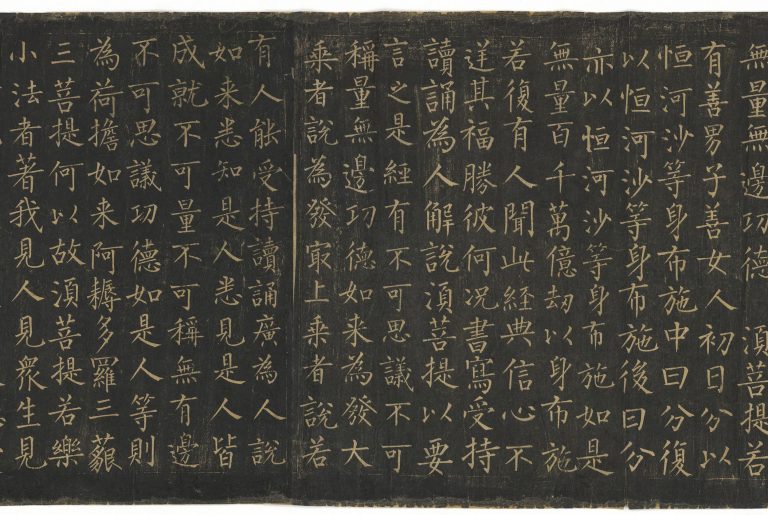 無量無邊功德 須菩提若
有善男子善女人初日分以
恒河沙等身布施中日分復
以恒河沙等身布施後日分
亦以恒河沙等身布施如是
無量百千萬億劫以身布施
若復有人聞此經典信心不
逆其福勝彼何況書寫受持
讀誦為人解說須菩提以要
言之是經有不可思議不可
稱量無邊功德如来為發大
乘者說為發最上乘者說若
有人能受持讀誦廣為人說
如来悉知是人悉見是人皆
成就不可量不可稱無有邊
不可思議功德如是人等則
為荷擔如来阿耨多羅三藐
三菩提何以故須菩提若樂
小法者著我見人見衆生見